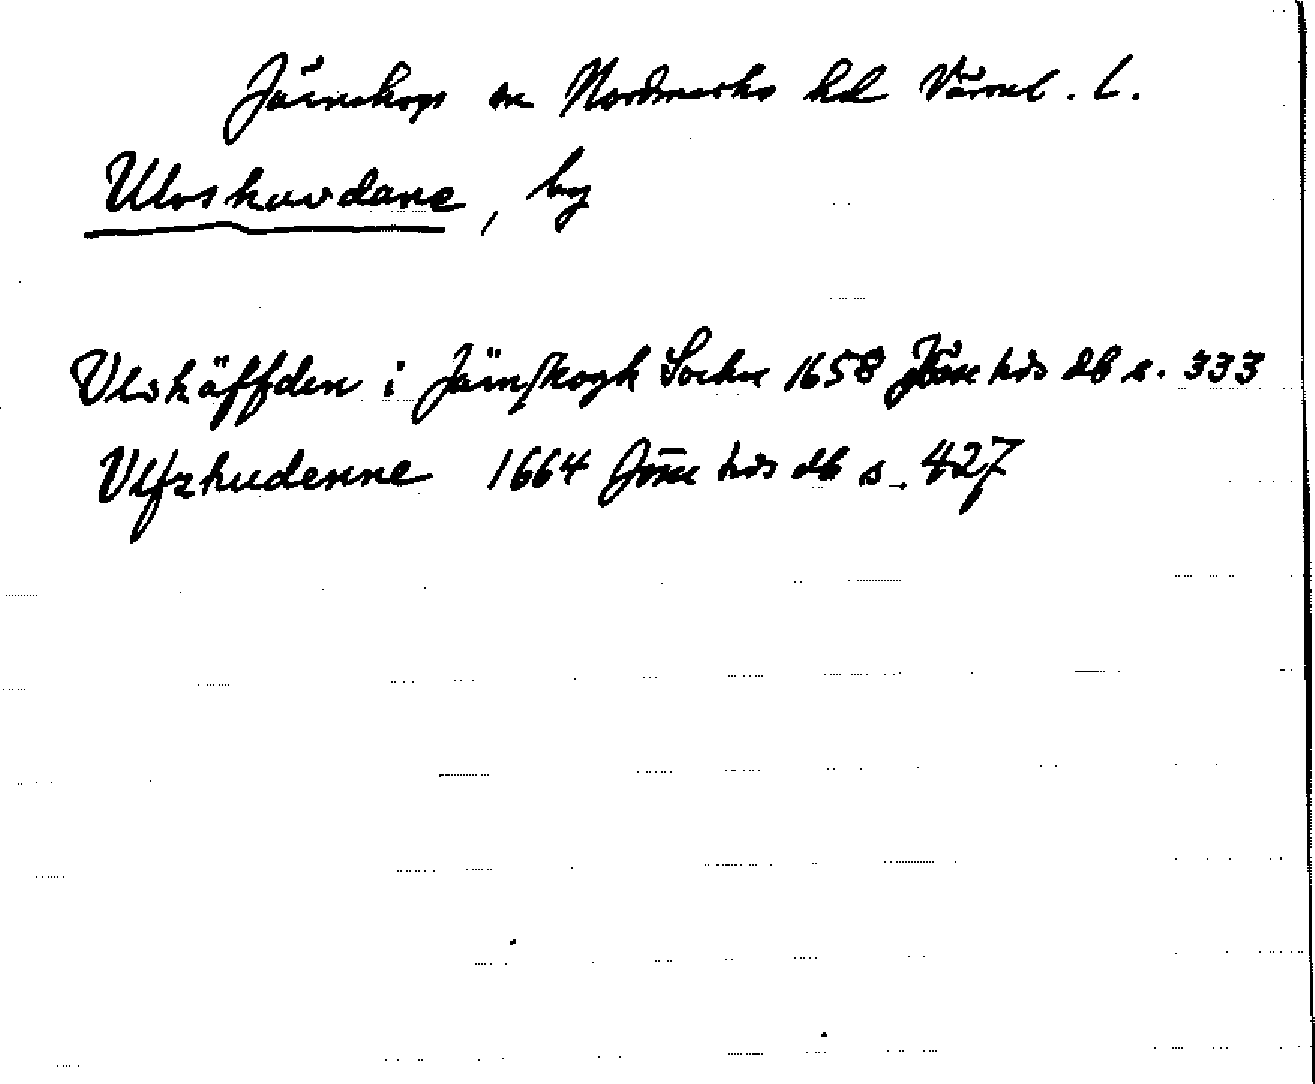 Järnskogs sn Nordmarks hd Värml. l.
Ulvskavdane, by
Vlvskäffden i Jämskogh Sochn 1658 Jöse hds db s. 333
Vlfzhudenne 1664 Jöse hds db s. 427